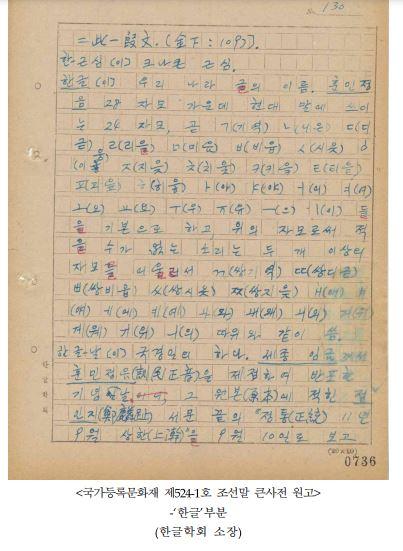 No. 130
=此一段文. (순下: 109).
한근심(이) 크나큰 근심.
한글(이) 우리 나라 글의 이름. 훈민정
음 28 자모 가운데 현대 말에 쓰이
는 24 자모, 곧 ㄱ(기역) ㄴ(니은) ㄷ(디
귿) ㄹ(리을) ㅁ(미음) ㅂ(비읍) ㅅ(시옷) ㅇ
(이응) ㅈ(지읒) ㅊ(치읓) ㅋ(키읔) ㅌ(티읕)
ㅍ(피읖) ㅎ(히읗) ㅏ(아) ㅑ(야) ㅓ(어) ㅕ(여)
ㅗ(오) ㅛ(요) ㅜ(우) ㅠ(유) ㅡ(으) ㅣ(이) 들
을 기본으로 하고, 위의 자모로써 적
을 수가 없는 소리는 두 개 이상의
자모를 어울러서 ㄲ(쌍기역) ㄸ(쌍디귿)
ㅃ(쌍비읍) ㅆ(쌍시옷) ㅉ(쌍지읒) ㅐ(애)
(얘) ㅔ(에) ㅖ(예) ㅘ(와) ㅙ(왜) ㅚ(외) ㅝ(워)
ㅞ(웨) ㅟ(위) ㅢ(의) 따위와 같이 씀.
한글날(이) 국경일의 하나. 세종 임금께서
훈민정음(訓民正音)을 제정하여 반포한
기념날 그 원본(原本)에 적힌 정
인지(鄭麟趾) 서문 끝의 "정통(正統) 11년
9월 상한(上澣)을 9월 10일로 보고
(20×10)
한글학회
0736
<국가등록문화재 제524-1호 조선말 큰사전 원고>
-'한글'부분
(한글학회 소장)